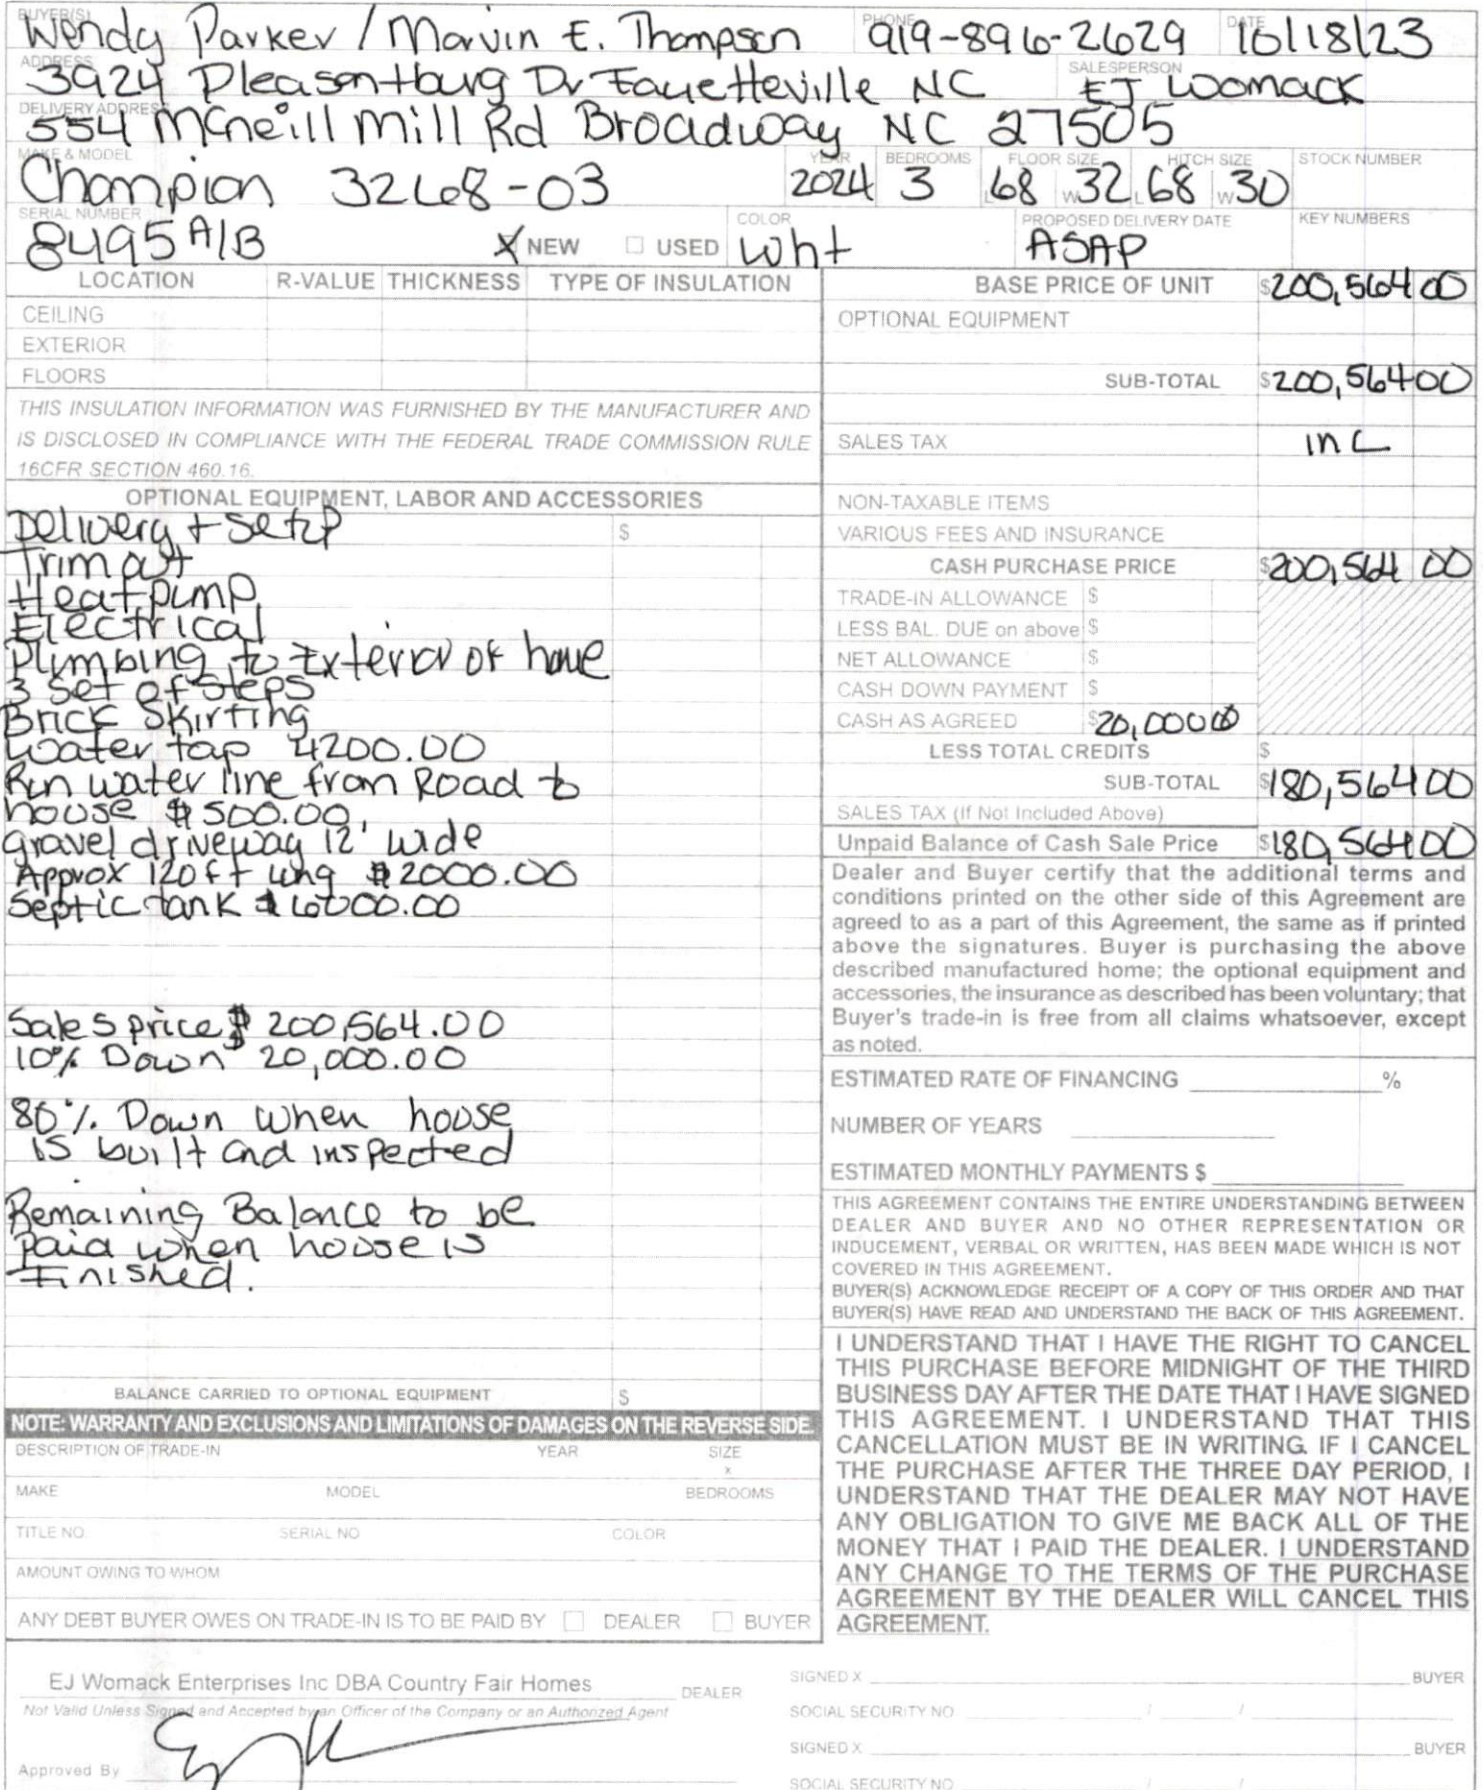 BUYER(S) PHONE DATE
Wendy Parker / Marvin E. Thompson 919-896-2629 10/18/23
ADDRESS SALESPERSON
3924 Pleasantburg Dr Fayetteville NC EJ Womack
DELIVERY ADDRESS
554 McNeill Mill Rd Broadway NC 27505
MAKE & MODEL YEAR BEDROOMS FLOOR SIZE HITCH SIZE STOCK NUMBER
Champion 3268-03 2024 3 L68 W32 L68 W30
SERIAL NUMBER COLOR PROPOSED DELIVERY DATE KEY NUMBERS
8495 A/B X NEW ☐ USED Wht ASAP
LOCATION R-VALUE THICKNESS TYPE OF INSULATION
CEILING
EXTERIOR
FLOORS
THIS INSULATION INFORMATION WAS FURNISHED BY THE MANUFACTURER AND
IS DISCLOSED IN COMPLIANCE WITH THE FEDERAL TRADE COMMISSION RULE
16CFR SECTION 460.16.
OPTIONAL EQUIPMENT, LABOR AND ACCESSORIES
Delivery + Setup $
Trim out
Heat pump
Electrical
Plumbing to Exterior of home
3 set of steps
Brick Skirting
Water tap 4200.00
Run water line from Road to
house $500.00
gravel driveway 12' wide
Approx 120ft long $2000.00
Septic tank $6000.00
Sales price $ 200,564.00
10% Down 20,000.00
80% Down when house
is built and inspected
Remaining Balance to be
paid when house is
Finished.
BALANCE CARRIED TO OPTIONAL EQUIPMENT $
NOTE: WARRANTY AND EXCLUSIONS AND LIMITATIONS OF DAMAGES ON THE REVERSE SIDE.
DESCRIPTION OF TRADE-IN YEAR SIZE
x
MAKE MODEL BEDROOMS
TITLE NO SERIAL NO COLOR
AMOUNT OWING TO WHOM
ANY DEBT BUYER OWES ON TRADE-IN IS TO BE PAID BY ☐ DEALER ☐ BUYER
BASE PRICE OF UNIT $200,564 00
OPTIONAL EQUIPMENT
SUB-TOTAL $200,564 00
SALES TAX inc
NON-TAXABLE ITEMS
VARIOUS FEES AND INSURANCE
CASH PURCHASE PRICE $200,564 00
TRADE-IN ALLOWANCE $
LESS BAL. DUE on above $
NET ALLOWANCE $
CASH DOWN PAYMENT $
CASH AS AGREED $20,000 00
LESS TOTAL CREDITS $
SUB-TOTAL $180,564 00
SALES TAX (If Not Included Above)
Unpaid Balance of Cash Sale Price $180,564 00
Dealer and Buyer certify that the additional terms and
conditions printed on the other side of this Agreement are
agreed to as a part of this Agreement, the same as if printed
above the signatures. Buyer is purchasing the above
described manufactured home; the optional equipment and
accessories, the insurance as described has been voluntary; that
Buyer's trade-in is free from all claims whatsoever, except
as noted.
ESTIMATED RATE OF FINANCING %
NUMBER OF YEARS
ESTIMATED MONTHLY PAYMENTS $
THIS AGREEMENT CONTAINS THE ENTIRE UNDERSTANDING BETWEEN
DEALER AND BUYER AND NO OTHER REPRESENTATION OR
INDUCEMENT, VERBAL OR WRITTEN, HAS BEEN MADE WHICH IS NOT
COVERED IN THIS AGREEMENT.
BUYER(S) ACKNOWLEDGE RECEIPT OF A COPY OF THIS ORDER AND THAT
BUYER(S) HAVE READ AND UNDERSTAND THE BACK OF THIS AGREEMENT.
I UNDERSTAND THAT I HAVE THE RIGHT TO CANCEL
THIS PURCHASE BEFORE MIDNIGHT OF THE THIRD
BUSINESS DAY AFTER THE DATE THAT I HAVE SIGNED
THIS AGREEMENT. I UNDERSTAND THAT THIS
CANCELLATION MUST BE IN WRITING. IF I CANCEL
THE PURCHASE AFTER THE THREE DAY PERIOD, I
UNDERSTAND THAT THE DEALER MAY NOT HAVE
ANY OBLIGATION TO GIVE ME BACK ALL OF THE
MONEY THAT I PAID THE DEALER. I UNDERSTAND
ANY CHANGE TO THE TERMS OF THE PURCHASE
AGREEMENT BY THE DEALER WILL CANCEL THIS
AGREEMENT.
EJ Womack Enterprises Inc DBA Country Fair Homes DEALER
Not Valid Unless Signed and Accepted by an Officer of the Company or an Authorized Agent
Approved By
SIGNED X BUYER
SOCIAL SECURITY NO / /
SIGNED X BUYER
SOCIAL SECURITY NO / /